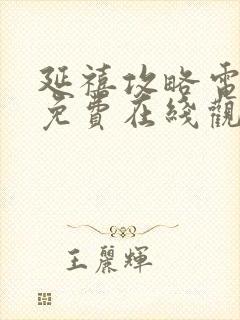 延禧攻略電
免費在綫觀
王麗輝